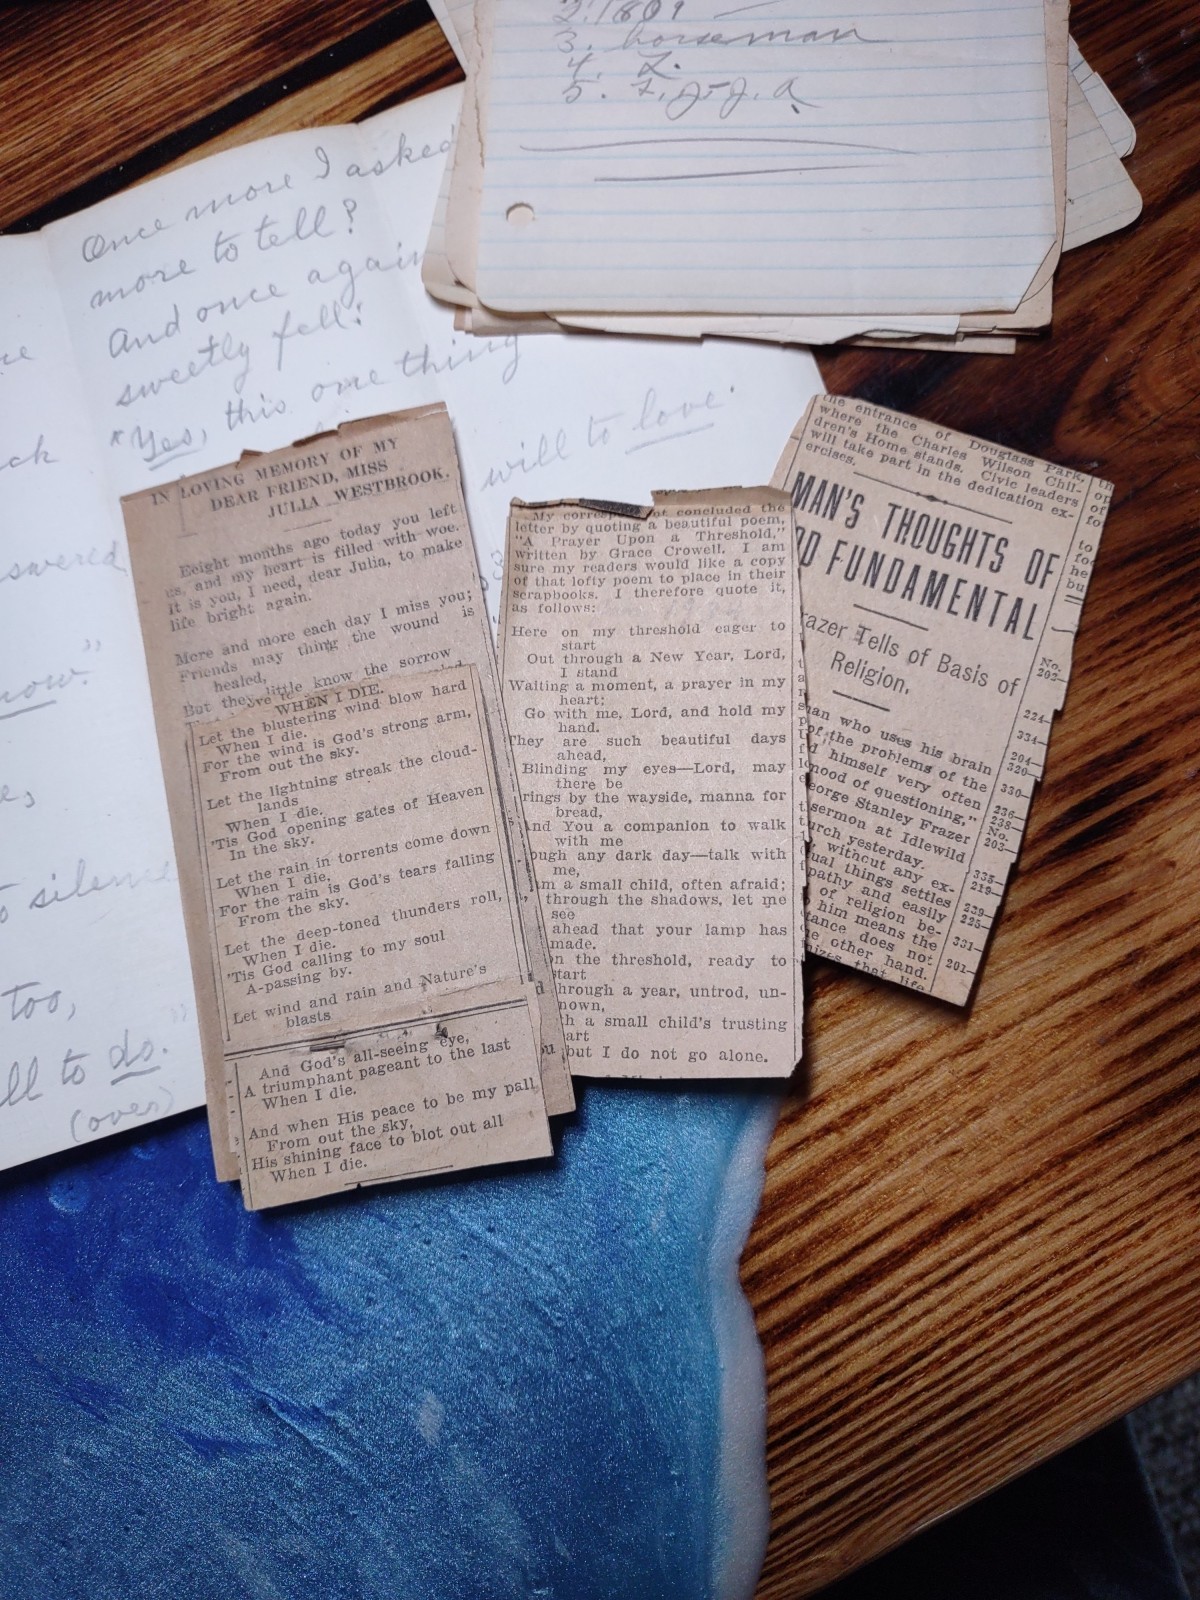 2. 1809
3. horseman
4. L.
5. F. J. J. A.
Once more I asked
more to tell?
And once again
sweetly fell:
"Yes, this one thing
will to love.
ck
swered
now."
to silence
too,
ll to do.
(over)
IN LOVING MEMORY OF MY
DEAR FRIEND, MISS
JULIA WESTBROOK.
Eeight months ago today you left
us, and my heart is filled with woe.
It is you, I need, dear Julia, to make
life bright again.
More and more each day I miss you;
Friends may thing the wound is
healed,
But they little know the sorrow
WHEN I DIE.
Let the blustering wind blow hard
When I die.
For the wind is God's strong arm,
From out the sky.
Let the lightning streak the cloud-
lands
When I die.
'Tis God opening gates of Heaven
In the sky.
Let the rain in torrents come down
When I die.
For the rain is God's tears falling
From the sky.
Let the deep-toned thunders roll,
When I die.
'Tis God calling to my soul
A-passing by.
Let wind and rain and Nature's
blasts
And God's all-seeing eye,
A triumphant pageant to the last
When I die.
And when His peace to be my pall
From out the sky,
His shining face to blot out all
When I die.
My concluded the
letter by quoting a beautiful poem,
"A Prayer Upon a Threshold,"
written by Grace Crowell. I am
sure my readers would like a copy
of that lofty poem to place in their
scrapbooks. I therefore quote it,
as follows:
Here on my threshold eager to
start
Out through a New Year, Lord,
I stand
Waiting a moment, a prayer in my
heart;
Go with me, Lord, and hold my
hand.
They are such beautiful days
ahead,
Blinding my eyes—Lord, may
there be
rings by the wayside, manna for
bread,
And You a companion to walk
with me
ough any dark day—talk with
me,
am a small child, often afraid;
through the shadows, let me
see
ahead that your lamp has
made.
on the threshold, ready to
start
through a year, untrod, un-
nown,
th a small child's trusting
art
ou but I do not go alone.
the entrance of Douglass Park,
where the Charles Wilson Chil-
dren's Home stands. Civic leaders
will take part in the dedication ex-
ercises.
MAN'S THOUGHTS OF
OD FUNDAMENTAL
razer Tells of Basis of
Religion.
man who uses his brain
of the problems of the
d himself very often
mood of questioning,"
eorge Stanley Frazer
sermon at Idlewild
urch yesterday.
without any ex-
ual things settles
pathy and easily
of religion be-
him means the
tance does not
e other hand.
nizes that life
op
of
fo
to
fo
he
bu
No.
203—
224—
334—
204—
320—
330—
236—
238—
No.
203—
335—
219—
239—
225—
331—
201—